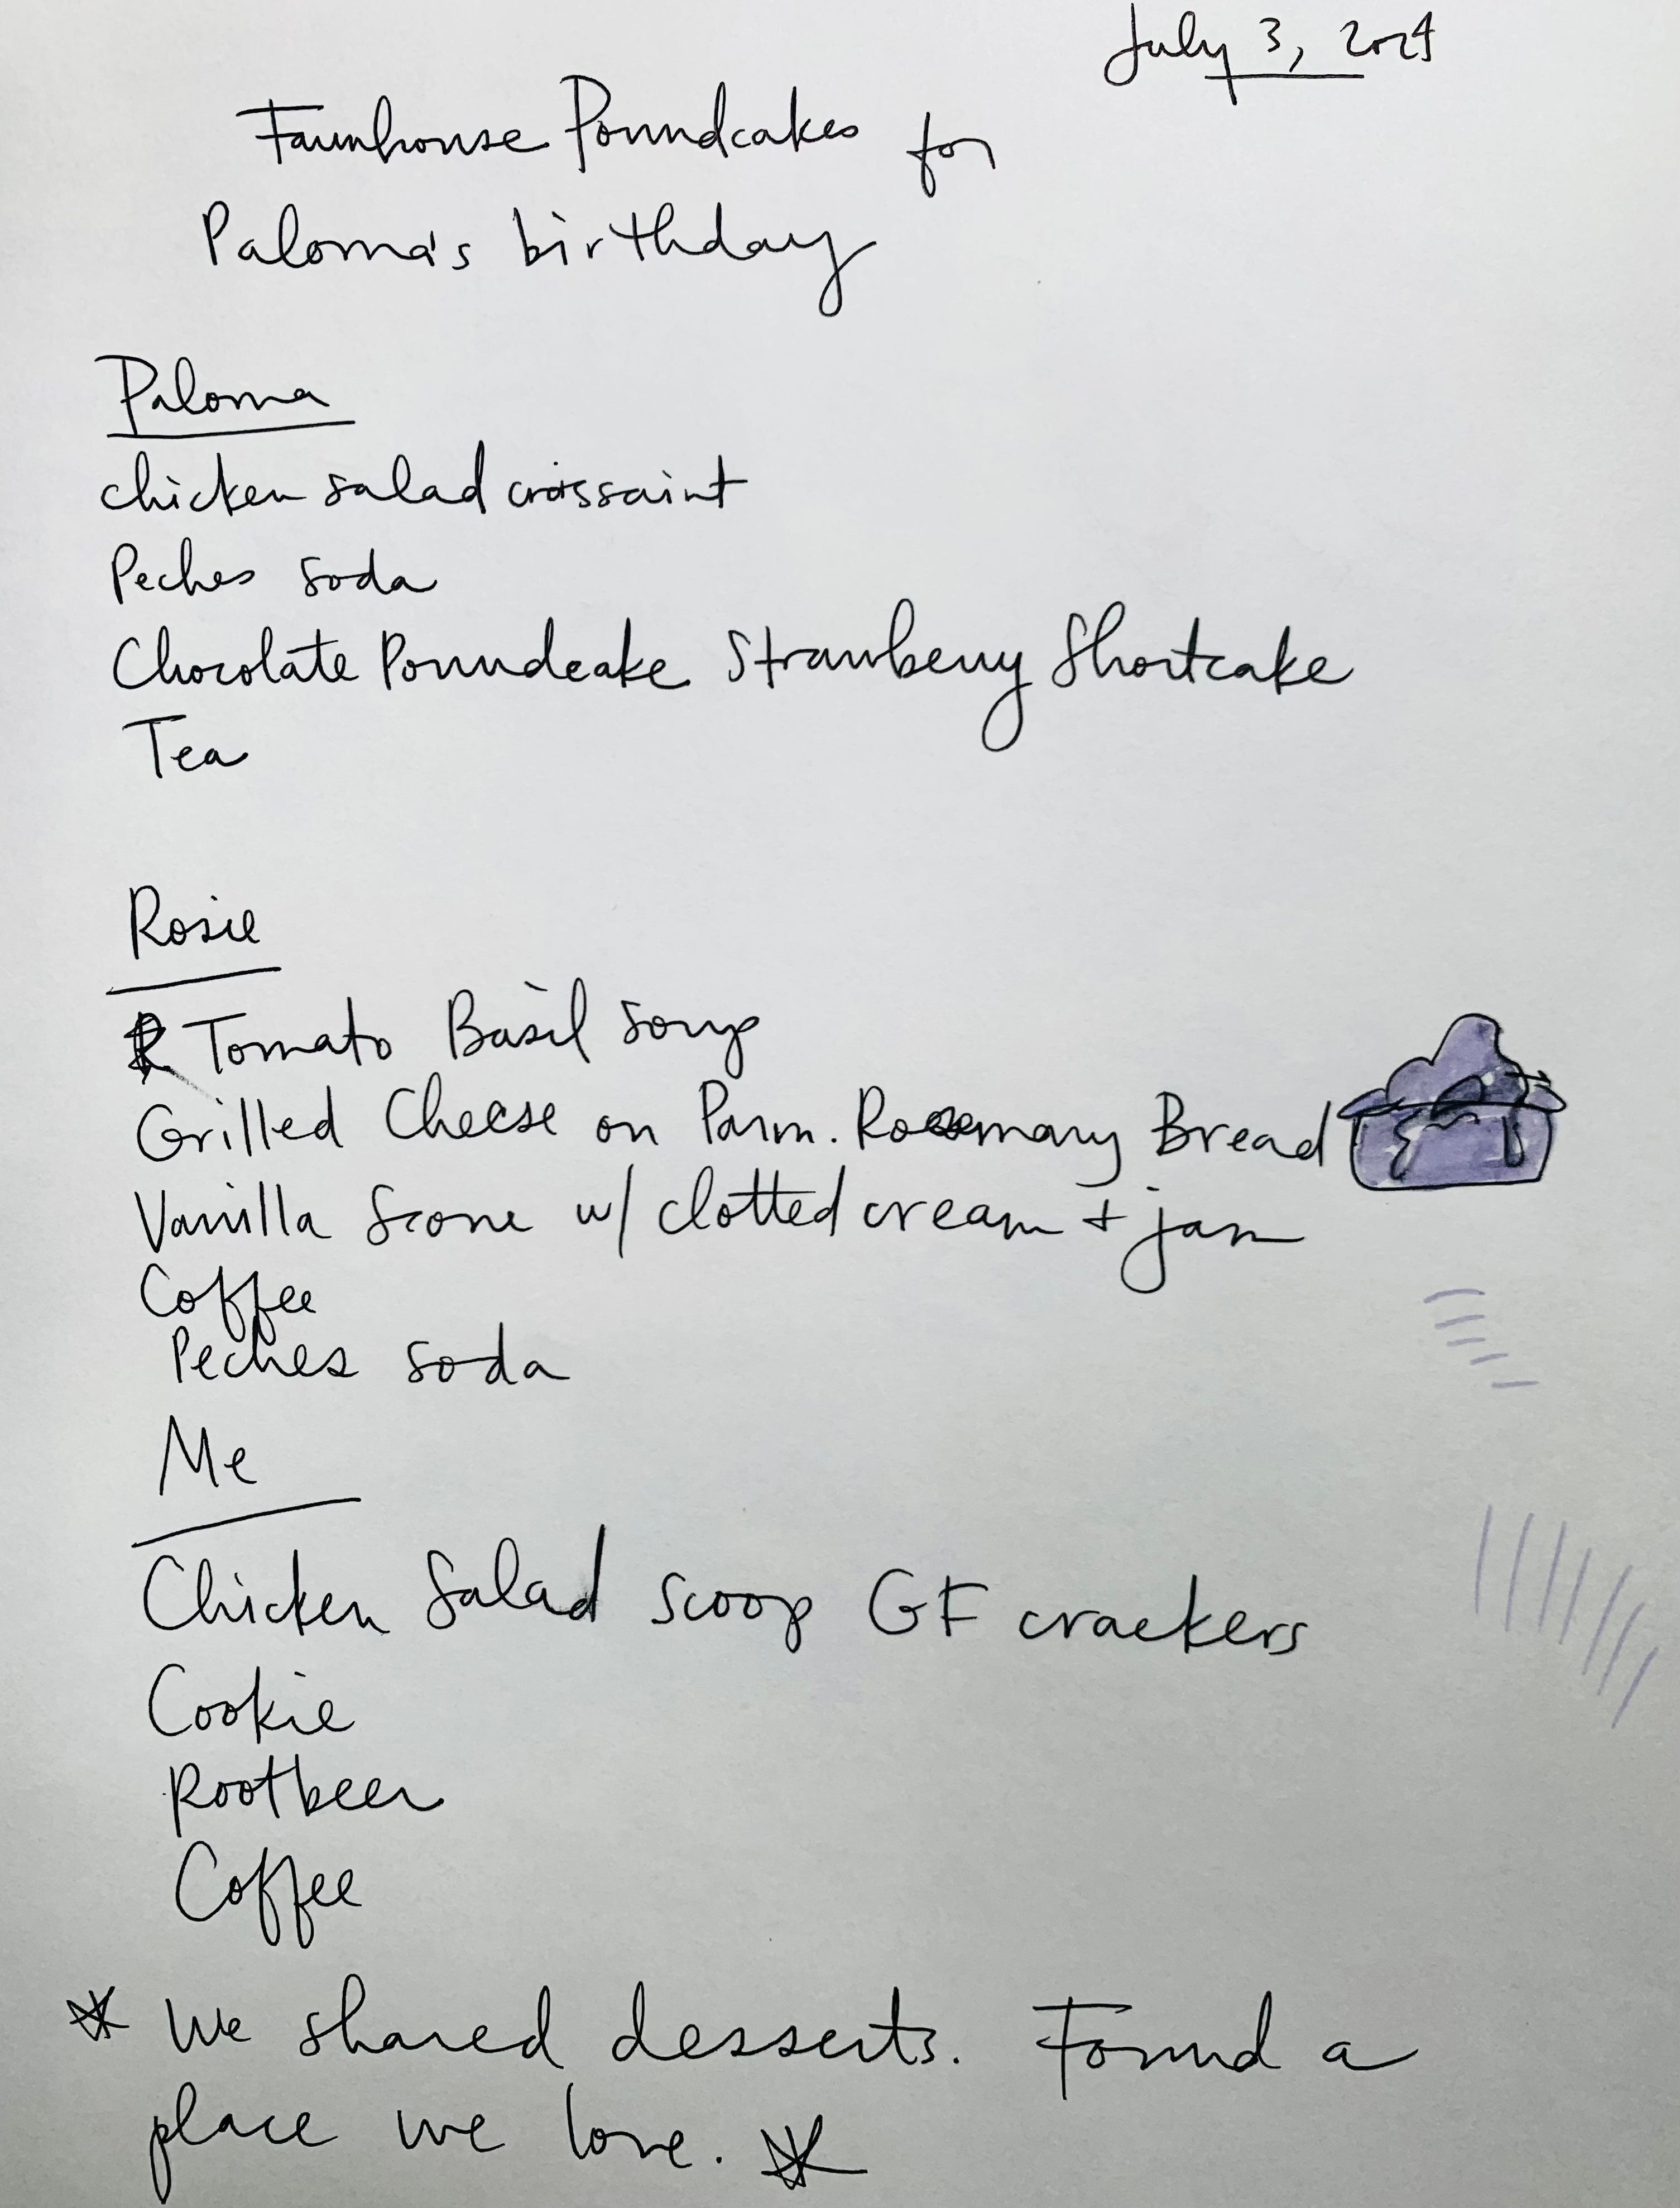 July 3, 2024
Farmhouse Poundcakes for
Paloma's birthday
Paloma
chicken salad croissaint
Peches soda
Chocolate Poundcake Strawberry Shortcake
Tea
Rosie
Tomato Basil soup
Grilled Cheese on Parm. Rosemary Bread
Vanilla Scone w/ clotted cream + jam
Coffee
Peches soda
Me
Chicken Salad scoop GF crackers
Cookie
Rootbeer
Coffee
* We shared desserts. Found a
place we love. *